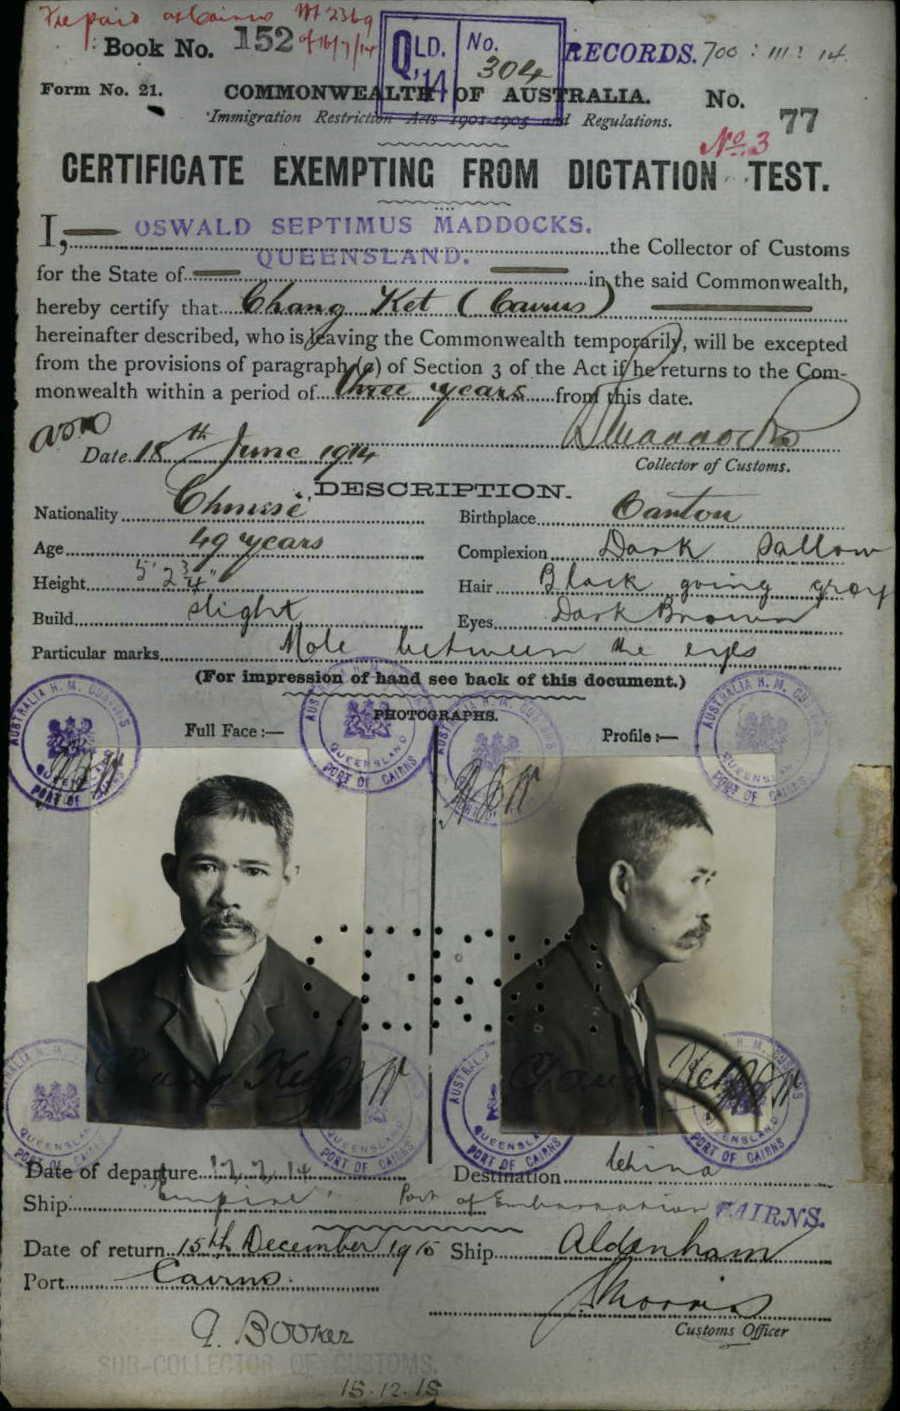 Fee paid at Cairns
of 16/7/14
Book No. 152
QLD. '14 No. 304
RECORDS. 700 : 111 : 14
Form No. 21.
COMMONWEALTH OF AUSTRALIA.
No. 77
Immigration Restriction Acts 1901-1905 and Regulations.
No. 3
CERTIFICATE EXEMPTING FROM DICTATION TEST.
I, OSWALD SEPTIMUS MADDOCKS. the Collector of Customs
for the State of QUEENSLAND. in the said Commonwealth,
hereby certify that Chang Ket (Cairns)
hereinafter described, who is leaving the Commonwealth temporarily, will be excepted
from the provisions of paragraph (a) of Section 3 of the Act if he returns to the Com-
monwealth within a period of three years from this date.
Date 18th June 1914
OSMaddocks
Collector of Customs.
DESCRIPTION.
Nationality Chinese Birthplace Canton
Age 49 years Complexion Dark Sallow
Height 5' 2 3/4" Hair Black going grey
Build slight Eyes Dark Brown
Particular marks Mole between the eyes
(For impression of hand see back of this document.)
PHOTOGRAPHS.
Full Face :— Profile :—
AUSTRALIA H. M. CUSTOMS QUEENSLAND PORT OF CAIRNS
AUSTRALIA H. M. CUSTOMS QUEENSLAND PORT OF CAIRNS
AUSTRALIA H. M. CUSTOMS QUEENSLAND PORT OF CAIRNS
AUSTRALIA H. M. CUSTOMS QUEENSLAND PORT OF CAIRNS
Chang Ket
Chang Ket
QUEENSLAND PORT OF CAIRNS
PORT OF CAIRNS
AUSTRALIA QUEENSLAND PORT OF CAIRNS
H. M. CUSTOMS QUEENSLAND PORT OF CAIRNS
Date of departure Destination China
Ship Empire Port of Embarkation CAIRNS.
Date of return 15th December 1915 Ship Aldenham
Port Cairns.
Customs Officer
SUB-COLLECTOR OF CUSTOMS.
15.12.15